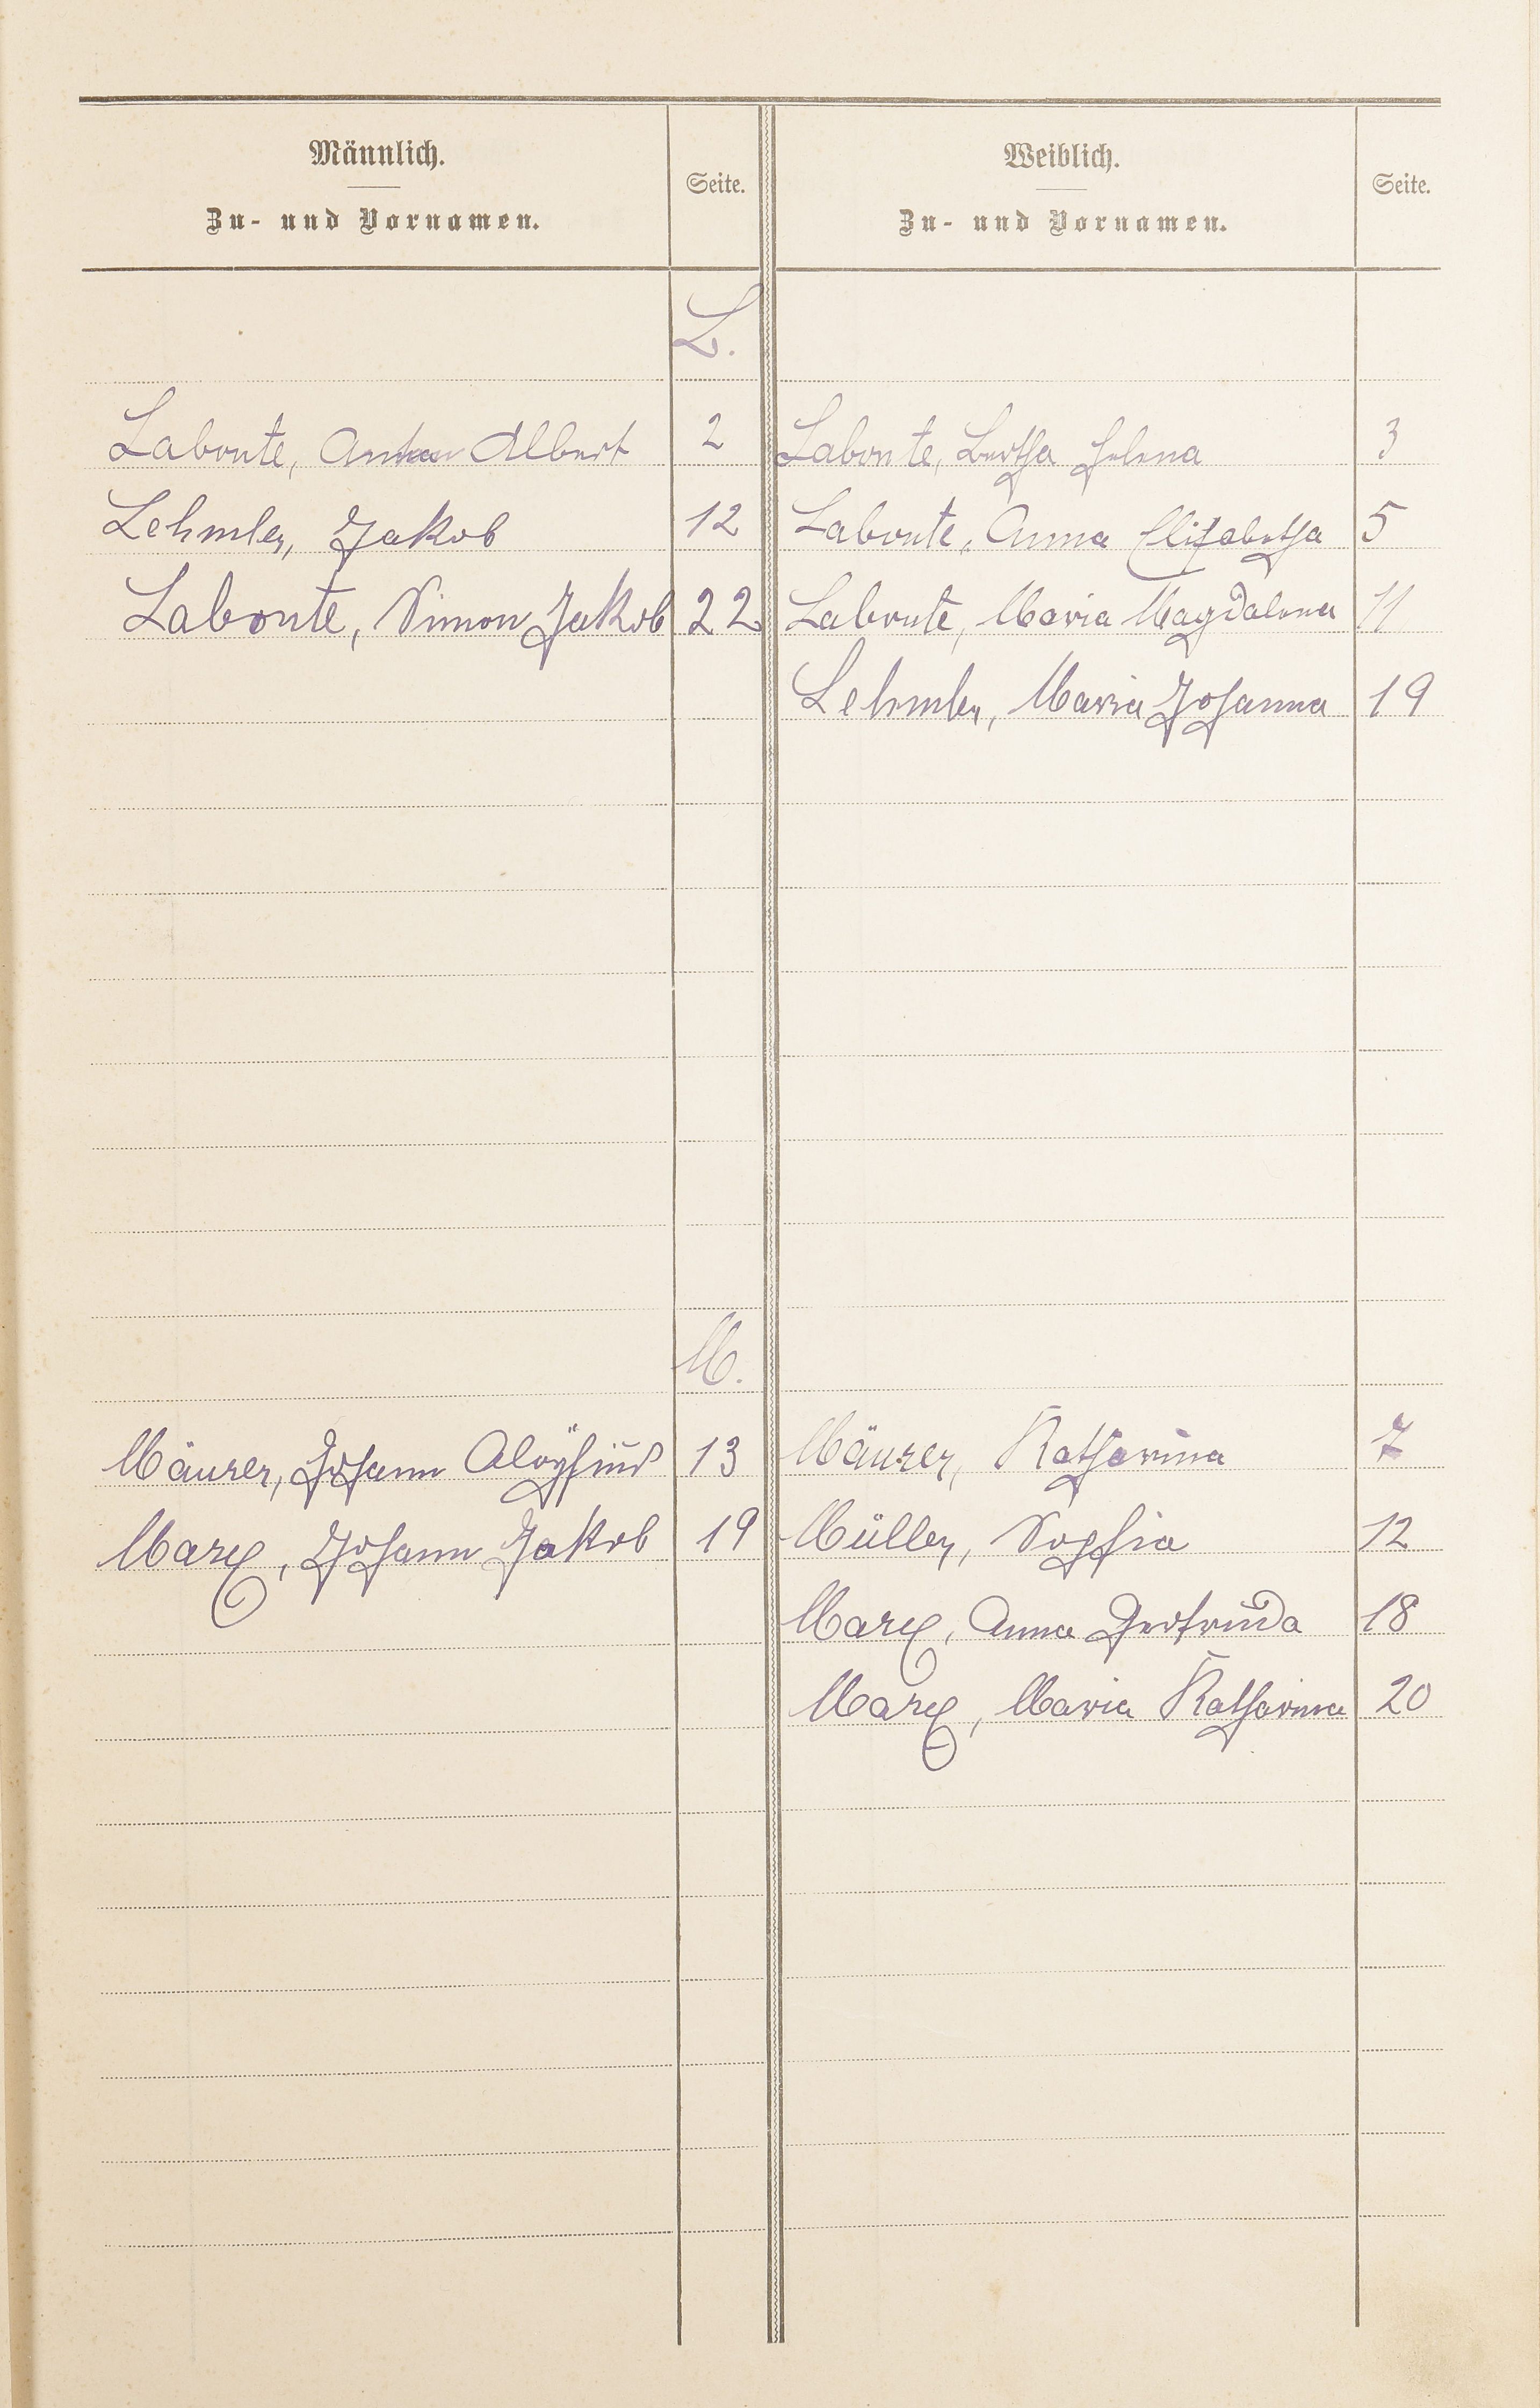 Männlich.
Zu- und Vornamen.
Seite.
Weiblich.
Zu- und Vornamen.
Seite.
L.
Labonte, Anton Albert 2
Labonte, Bertha Helena 3
Lehmler, Jakob 12
Labonte, Anna Elisabetha 5
Labonte, Simon Jakob 22
Labonte, Maria Magdalena 11
Lehmler, Maria Johanna 19
M.
Mäurer, Johann Aloÿsius 13
Mäurer, Katharina 7
Marx, Johann Jakob 19
Müller, Sophia 12
Marx, Anna Gertruda 18
Marx, Maria Katharina 20